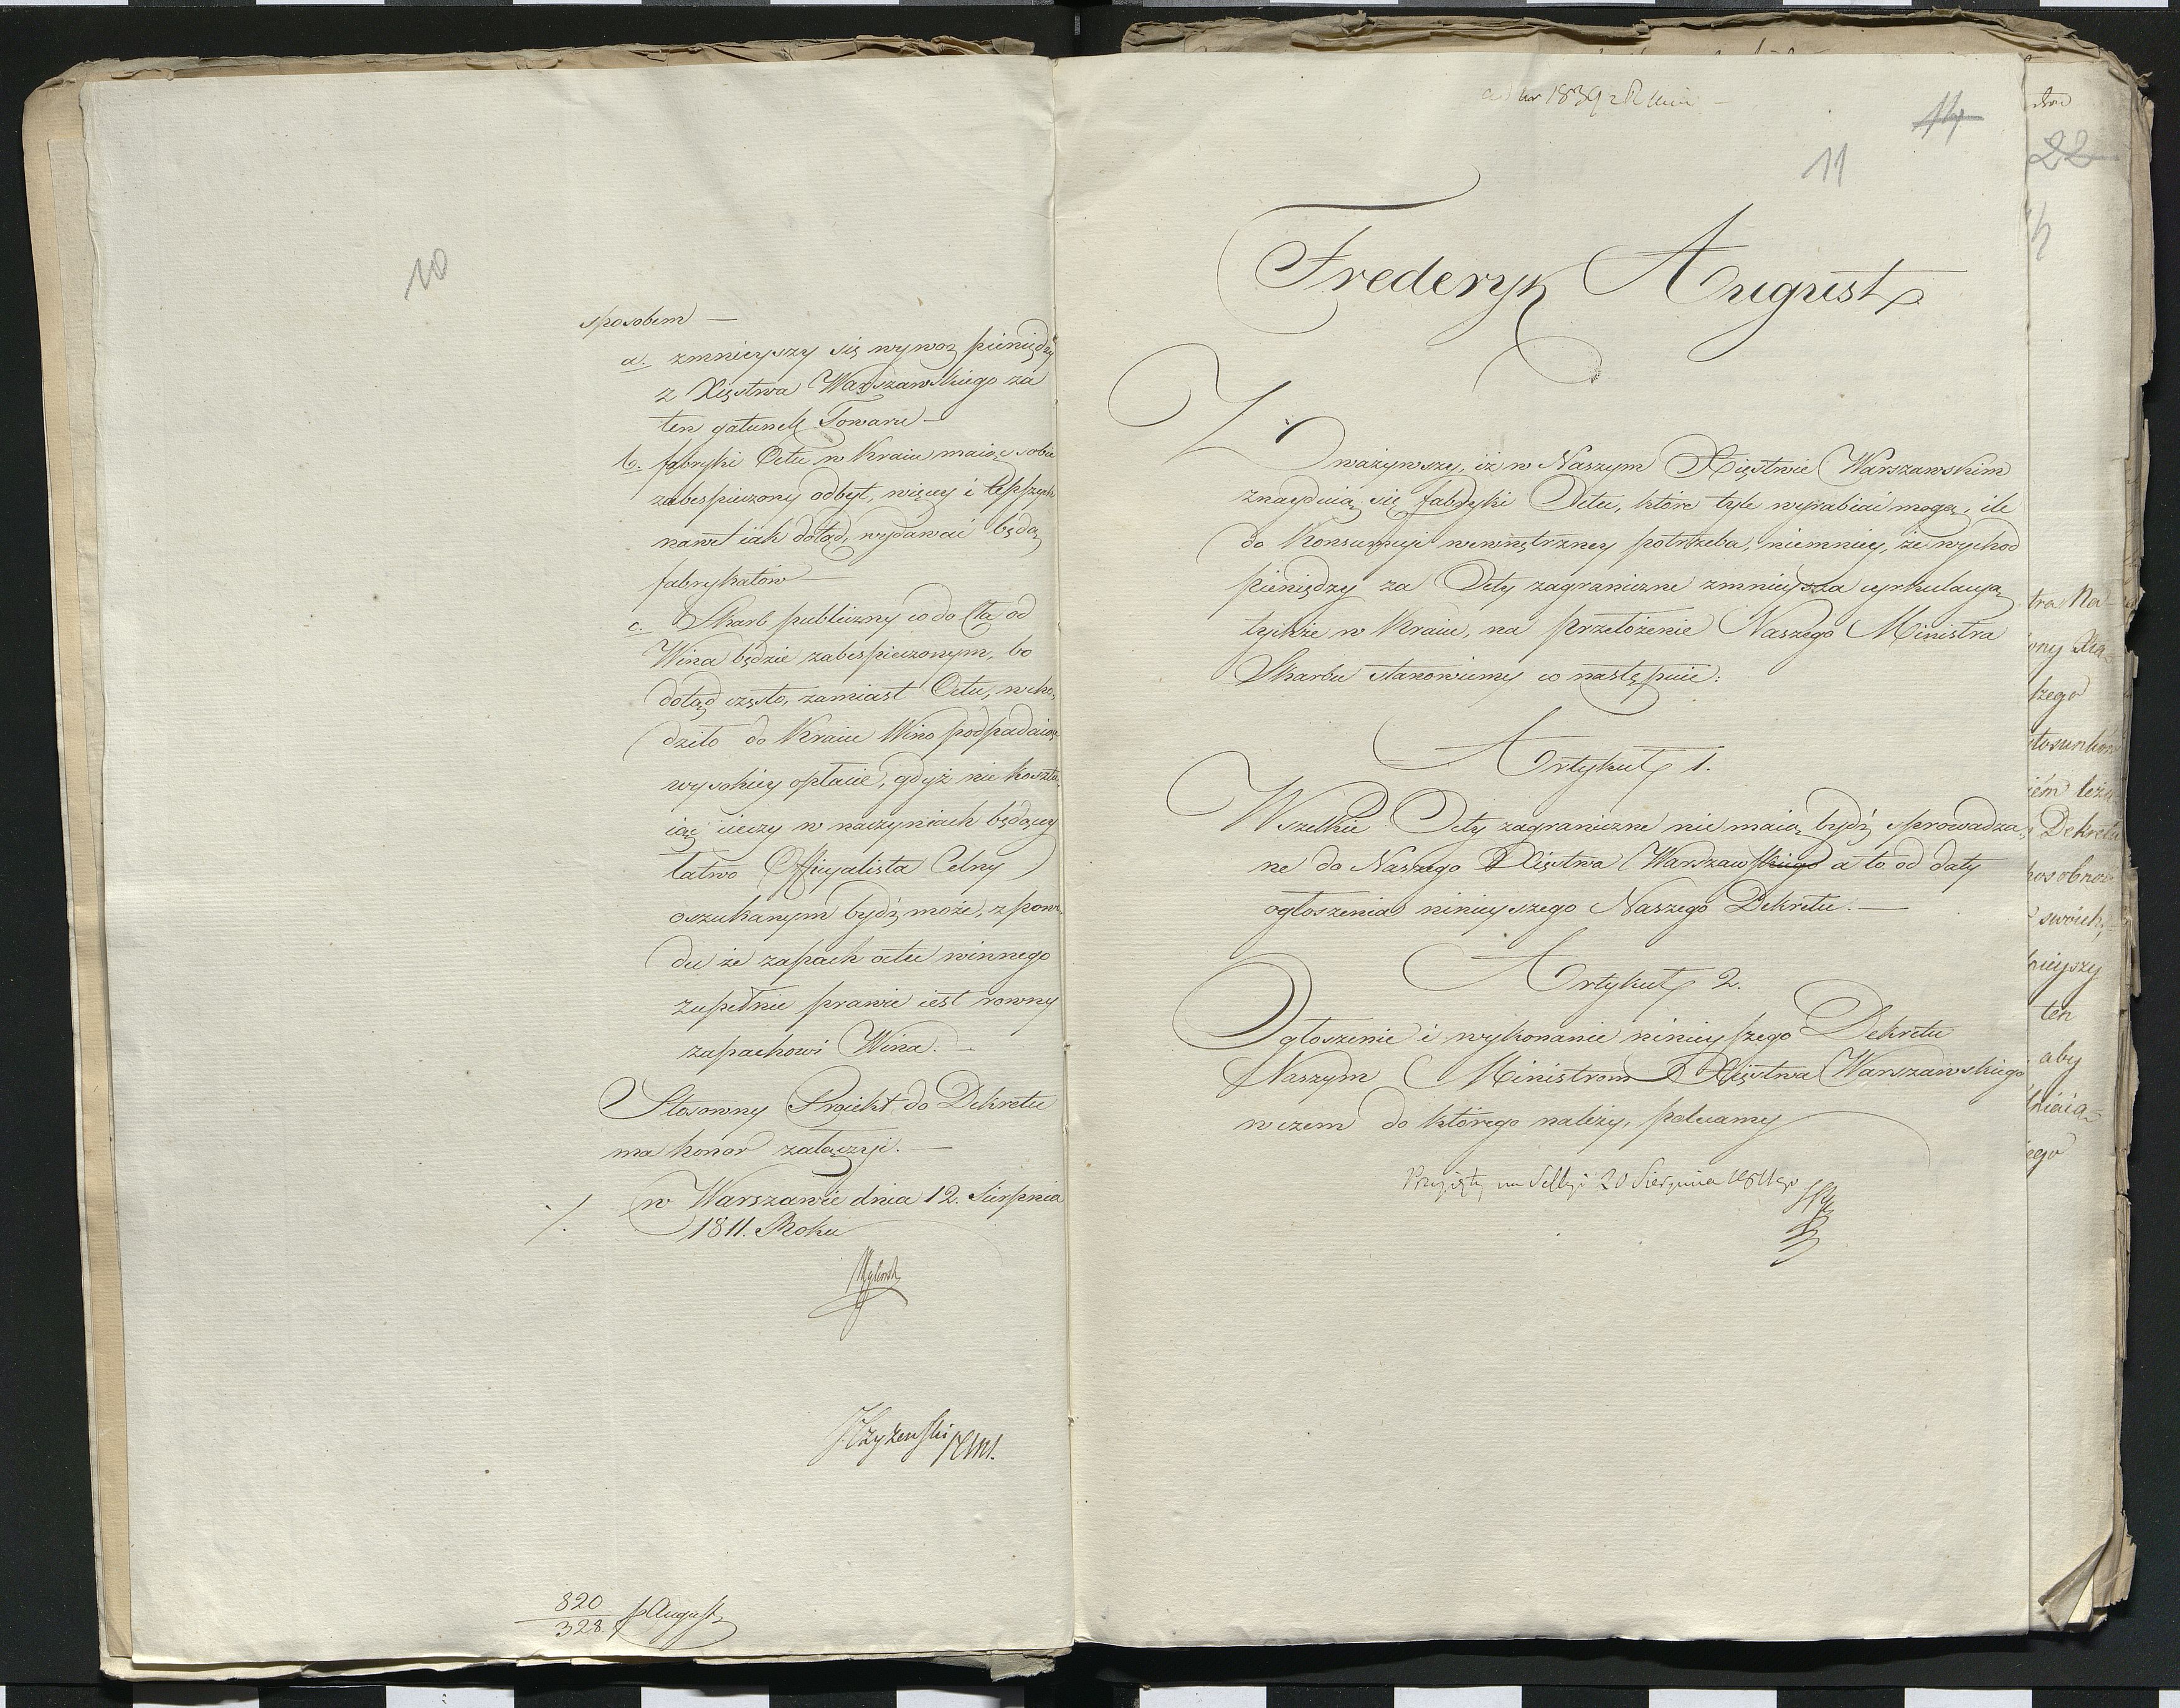 10
sposobem —
a. zmnieyszy się wywoz pieniędzy
z Xięstwa Warszawskiego za
ten gatunek Towaru —
b. fabryki Octu w Kraiu maiąc sobie
zabespieczony odbyt, więcey i lepszych
nawet iak dotąd, wydawać będą
fabrykatów —
c. Skarb publiczny co do Cła od
Wina będzie zabespieczonym, bo
dotąd często, zamiast Octu, wcho,
dziło do Kraiu Wino podpadaiące
wysokiey opłacie, gdyż nie koszta,
iąc cieczy w naczyniach będącey
łatwo Officyalista Celny
oszukanym bydź może, z powo,
du że zapach octu winnego
zupełnie prawie iest rowny
zapachowi Wina. —
Stosowny Proiekt do Dekretu
ma honor załączyć. —
w Warszawie dnia 12. Sierpnia
1811. Roku
820
328. August
ad nr 1839
14
11
Fryderyk August
Zważywszy, iż w Naszym Xięstwie Warszawskim
znayduią się fabryki Octu, które tyle wyrabiać mogą, ile
do Konsumpcyi wewnętrzney potrzeba, niemniey, że wychod
pieniędzy za Octy zagraniczne zmnieysza cyrkulacyą
tychże w Kraiu, na przełożenie Naszego Ministra
Skarbu stanowiemy co następuie:
Artykuł 1.
Wszelkie Octy zagraniczne nie maią bydź sprowadza,
ne do Naszego Xięstwa Warszawskiego a to od daty
ogłoszenia ninieyszego Naszego Dekretu. —
Artykuł 2.
Ogłoszenie i wykonanie ninieyszego Dekretu
Naszym Ministrom Xięstwa Warszawskiego
w czem do którego należy, polecamy
Przyięty na Sessyi 20 Sierpnia 1811 go
22
tra Na
szego
Dekretu
swoich,
ten
aby
ego